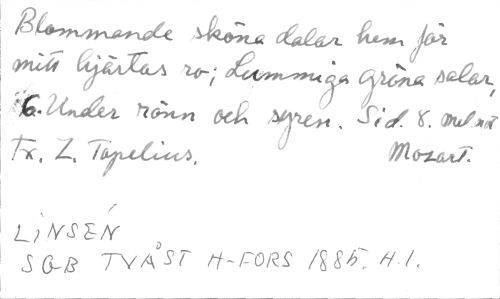 Blommande sköna dalar hem för
mitt hjärtas ro; Lummiga gröna salar,
6. Under rönn och syren. Sid. 8. mel. not
Fr. Z. Topelius. Mozart.
LINSÉN
SGB TVÅST H-FORS 1885. H.1.